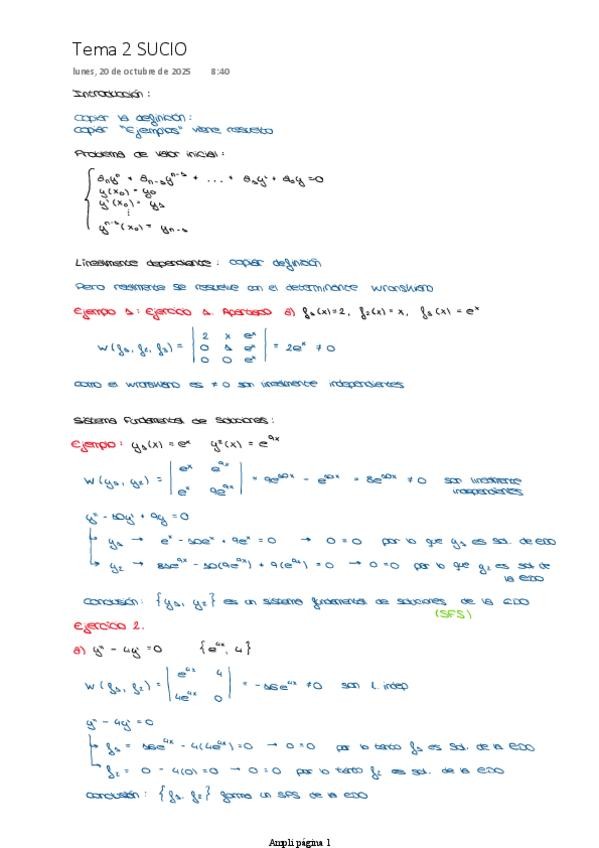 Tema 2 SUCIO
lunes, 20 de octubre de 2025 8:40
Introducción:
copiar la definición:
copiar "Ejemplos" viene resuelto
Problema de valor inicial:
aₙyⁿ + aₙ₋₁yⁿ⁻¹ + ... + a₁y' + a₀y = 0
y(x₀) = y₀
y'(x₀) = y₁
⋮
yⁿ⁻¹(x₀) = yₙ₋₁
Linealmente dependiente: copiar definición
Pero realmente se resuelve con el determinante wronskiano
Ejemplo 1: Ejercicio 1. Apartado a) f₁(x)=2, f₂(x)=x, f₃(x) = eˣ
W(f₁, f₂, f₃) = | 2 x eˣ | 0 1 eˣ | 0 0 eˣ | = 2eˣ ≠ 0
como el wronskiano es ≠ 0 son linealmente independientes
Sistema Fundamental de Soluciones:
Ejemplo: y₁(x) = eˣ y²(x) = e⁹ˣ
W(y₁, y₂) = | eˣ e⁹ˣ | eˣ 9e⁹ˣ | = 9e¹⁰ˣ - e¹⁰ˣ = 8e¹⁰ˣ ≠ 0 son linealmente independientes
y'' - 10y' + 9y = 0
y₁ → eˣ - 10eˣ + 9eˣ = 0 → 0 = 0 por lo que y₁ es sol. de EDO
y₂ → 81e⁹ˣ - 10(9e⁹ˣ) + 9(e⁹ˣ) = 0 → 0 = 0 por lo que y₂ es sol. de la EDO
Conclusión: {y₁, y₂} es un sistema fundamental de soluciones de la EDO
(SFS)
Ejercicio 2.
a) y'' - 4y' = 0 {e⁴ˣ, 4}
W(f₁, f₂) = | e⁴ˣ 4 | 4e⁴ˣ 0 | = -16e⁴ˣ ≠ 0 son l. indep
y'' - 4y' = 0
f₁ = 16e⁴ˣ - 4(4e⁴ˣ) = 0 → 0 = 0 por lo tanto f₁ es sol. de la EDO
f₂ = 0 - 4(0) = 0 → 0 = 0 por lo tanto f₂ es sol. de la EDO
Conclusión: {f₁, f₂} forma un SFS de la EDO
Ampli página 1